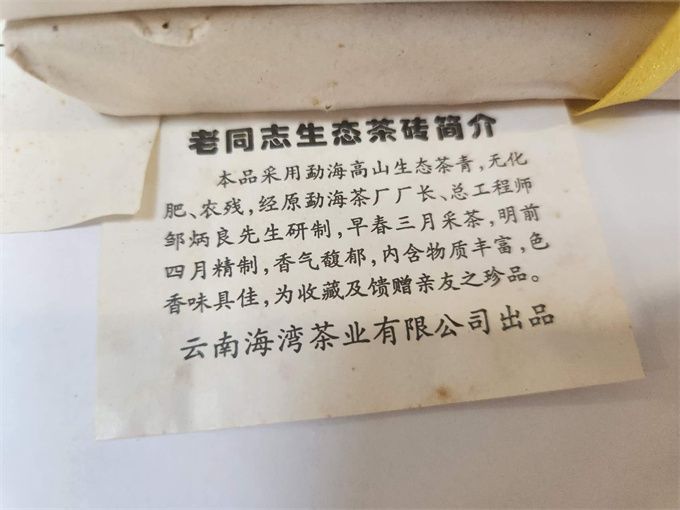 老同志生态茶砖简介
本品采用勐海高山生态茶青，无化
肥、农残，经原勐海茶厂厂长、总工程师
邹炳良先生研制，早春三月采茶，明前
四月精制，香气馥郁，内含物质丰富，色
香味具佳，为收藏及馈赠亲友之珍品。
云南海湾茶业有限公司出品